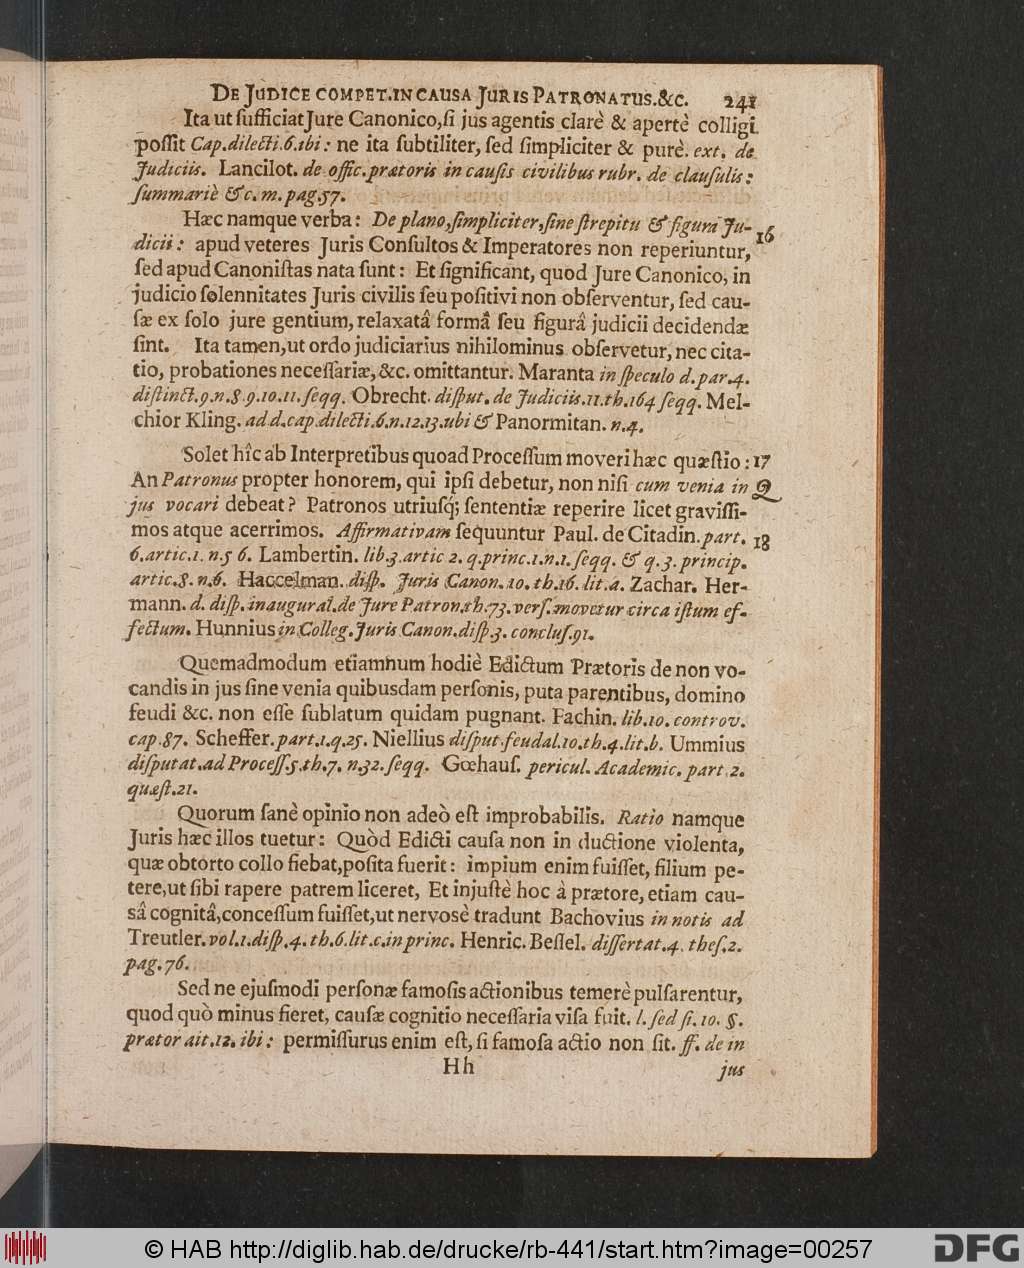 DE JUDICE COMPET. IN CAUSA JURIS PATRONATUS. &c. 241
Ita ut ſufficiat Jure Canonico, ſi jus agentis clarè & apertè colligi
poſſit Cap. dilecti. 6. ibi: ne ita ſubtiliter, ſed ſimpliciter & purè. ext. de
Judiciis. Lancilot. de offic. prætoris in cauſis civilibus rubr. de clauſulis:
ſummariè &c. m. pag. 57.
Hæc namque verba: De plano, ſimpliciter, ſine ſtrepitu & figura Ju-
dicii: apud veteres Juris Conſultos & Imperatores non reperiuntur, 16
ſed apud Canoniſtas nata ſunt: Et ſignificant, quod Jure Canonico, in
judicio ſolennitates Juris civilis ſeu poſitivi non obſerventur, ſed cau-
ſæ ex ſolo jure gentium, relaxatâ formâ ſeu figurâ judicii decidendæ
ſint. Ita tamen, ut ordo judiciarius nihilominus obſervetur, nec cita-
tio, probationes neceſſariæ, &c. omittantur. Maranta in ſpeculo d. par. 4.
diſtinct. 9. n. 8. 9. 10. 11. ſeqq. Obrecht. diſput. de Judiciis. 11. th. 164 ſeqq. Mel-
chior Kling. ad d. cap. dilecti. 6. n. 12. 13. ubi & Panormitan. n. 4.
Solet hîc ab Interpretibus quoad Proceſſum moveri hæc quæſtio: 17
An Patronus propter honorem, qui ipſi debetur, non niſi cum venia in Q
jus vocari debeat? Patronos utriuſq; ſententiæ reperire licet graviſſi-
mos atque acerrimos. Affirmativam ſequuntur Paul. de Citadin. part. 18
6. artic. 1. n. 56. Lambertin. lib. 3. artic 2. q. princ. 1. n. 1. ſeqq. & q. 3. princip.
artic. 8. n. 6. Haccelman. diſp. Juris Canon. 10. th. 16. lit. a. Zachar. Her-
mann. d. diſp. inaugural. de Jure Patron. th. 73. verſ. movetur circa iſtum ef-
fectum. Hunnius in Colleg. Juris Canon. diſp. 3. concluſ. 91.
Quemadmodum etiamnum hodiè Edictum Prætoris de non vo-
candis in jus ſine venia quibusdam perſonis, puta parentibus, domino
feudi &c. non eſſe ſublatum quidam pugnant. Fachin. lib. 10. controv.
cap. 87. Scheffer. part. 1. q. 25. Niellius diſput. feudal. 10. th. 4. lit. b. Ummius
diſputat. ad Proceſſ. 5. th. 7. n. 32. ſeqq. Gœhauſ. pericul. Academic. part. 2.
quæſt. 21.
Quorum ſanè opinio non adeò eſt improbabilis. Ratio namque
Juris hæc illos tuetur: Quòd Edicti cauſa non in ductione violenta,
quæ obtorto collo fiebat, poſita fuerit: impium enim fuiſſet, filium pe-
tere, ut ſibi rapere patrem liceret, Et injuſtè hoc à prætore, etiam cau-
sâ cognitâ, conceſſum fuiſſet, ut nervosè tradunt Bachovius in notis ad
Treutler. vol. 1. diſp. 4. th. 6. lit. c. in princ. Henric. Beſſel. diſſertat. 4. theſ. 2.
pag. 76.
Sed ne ejuſmodi perſonæ famoſis actionibus temerè pulſarentur,
quod quò minus fieret, cauſæ cognitio neceſſaria viſa fuit. l. ſed ſi. 10. §.
prætor ait. 12. ibi: permiſſurus enim eſt, ſi famoſa actio non ſit. ff. de in
Hh jus
© HAB http://diglib.hab.de/drucke/rb-441/start.htm?image=00257
DFG